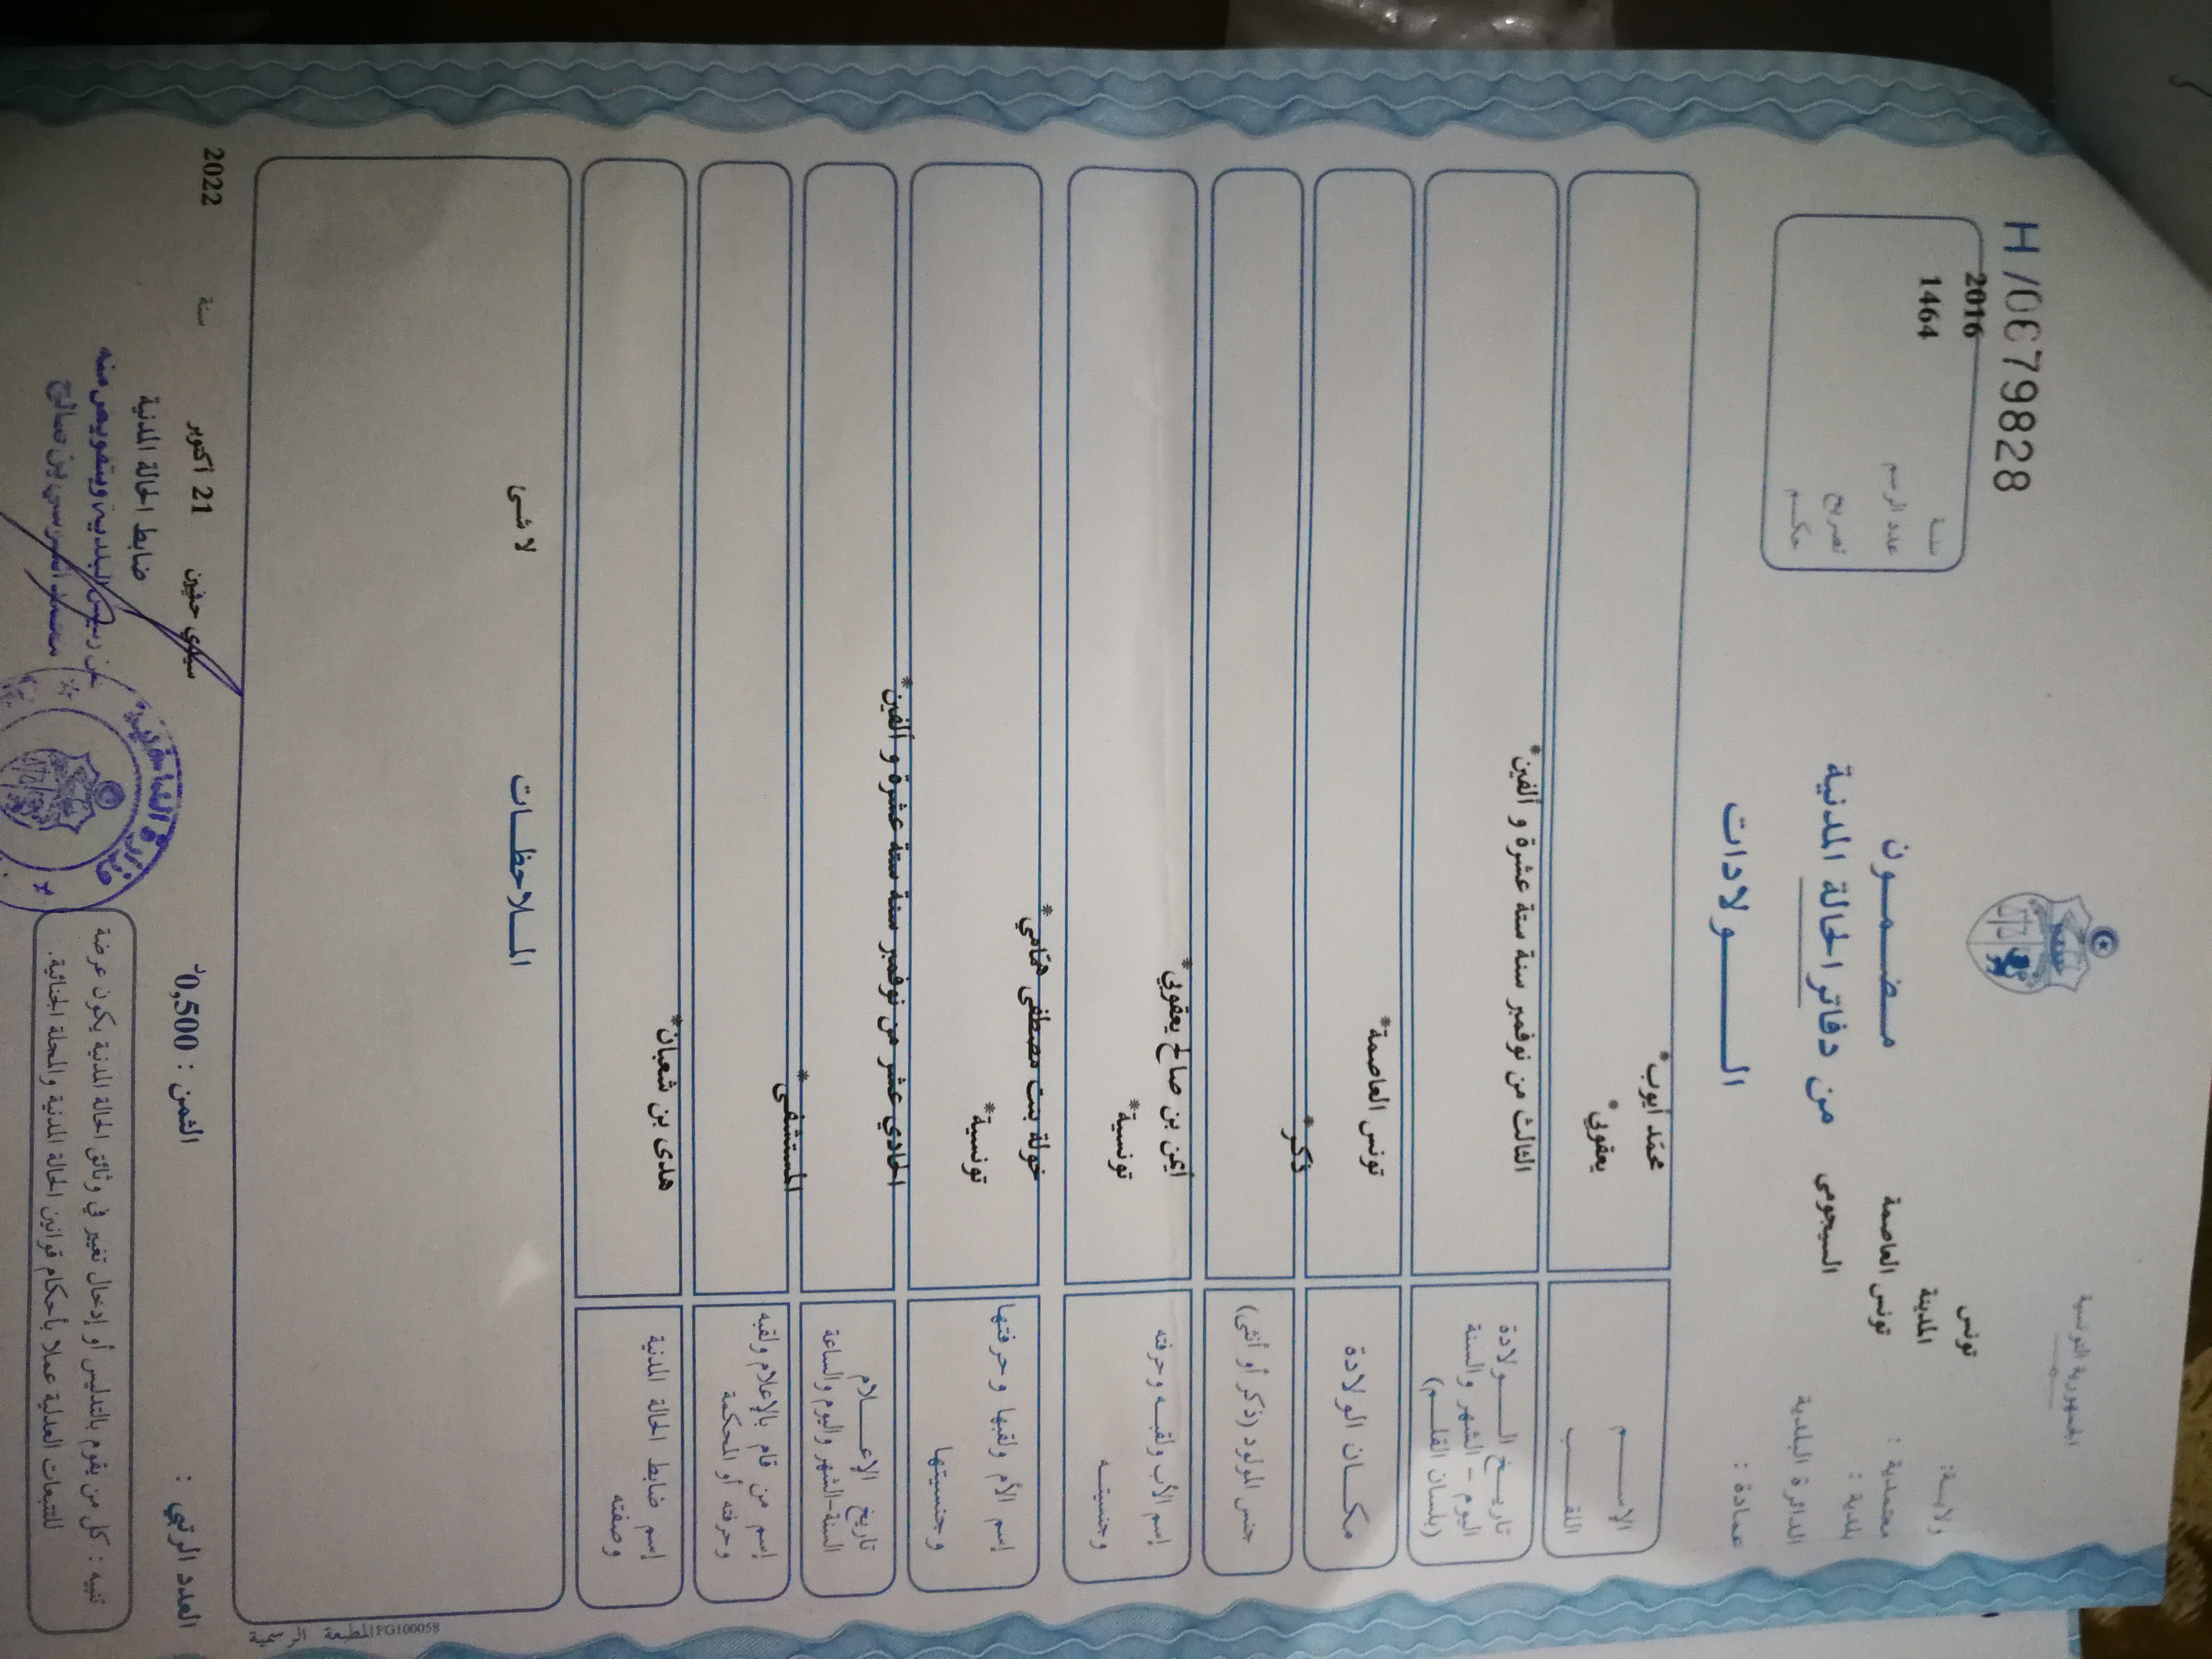 الجمهورية التونسية
ولاية: تونس
معتمدية : المدينة
بلدية : تونس العاصمة
الدائرة البلدية السيجومي
عمادة :
H /0679828
سنة 2016
عدد الرسم 1464
تصريح
حكم
مضمون
من دفاتر الحالة المدنية
الولادات
الإسم محمّد أيوب*
اللقب يعقوبي*
تاريخ الولادة
اليوم - الشهر والسنة
(بلسان القلم)
الثالث من نوفمبر سنة ستة عشرة و ألفين*
مكان الولادة تونس العاصمة*
جنس المولود (ذكر أو أنثى) ذكر*
إسم الأب ولقبه وحرفته أيمن بن صالح يعقوبي*
وجنسيته تونسية*
إسم الأم ولقبها وحرفتها خولة بنت مصطفى همّامي*
وجنسيتها تونسية*
تاريخ الإعلام
السنة-الشهر واليوم والساعة
الحادي عشر من نوفمبر سنة ستة عشرة و ألفين*
إسم من قام بالإعلام ولقبه
وحرفته أو المحكمة
المستشفى*
إسم ضابط الحالة المدنية
وصفته
هدى بن شعبان*
الملاحظات
لا شئ
المطبعة الرسمية IFG100058
العدد الرتبي :
الثمن : 0,500د
سيدي حسين 21 أكتوبر سنة 2022
ضابط الحالة المدنية
عن رئيس البلدية وبتفويض منه
محمد السوسي بن صالح
تنبيه : كل من يقوم بالتدليس أو إدخال تغيير في وثائق الحالة المدنية يكون عرضة
للتتبعات العدلية عملا بأحكام قوانين الحالة المدنية والمجلة الجنائية.